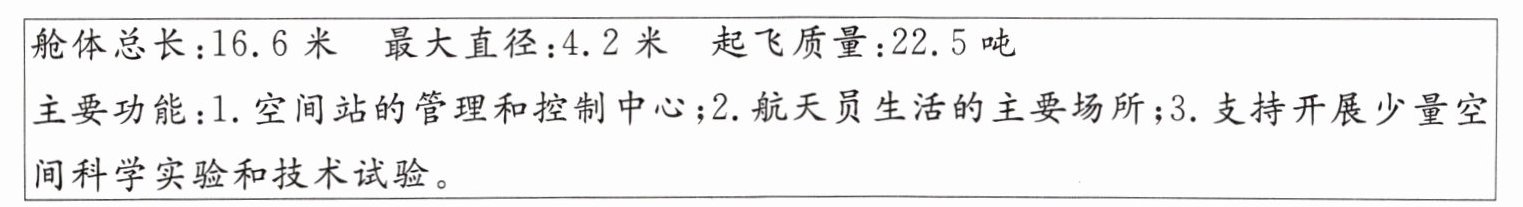 舱体总长:16.6 米　最大直径:4.2 米　起飞质量:22.5 吨
主要功能:1. 空间站的管理和控制中心;2. 航天员生活的主要场所;3. 支持开展少量空
间科学实验和技术试验。